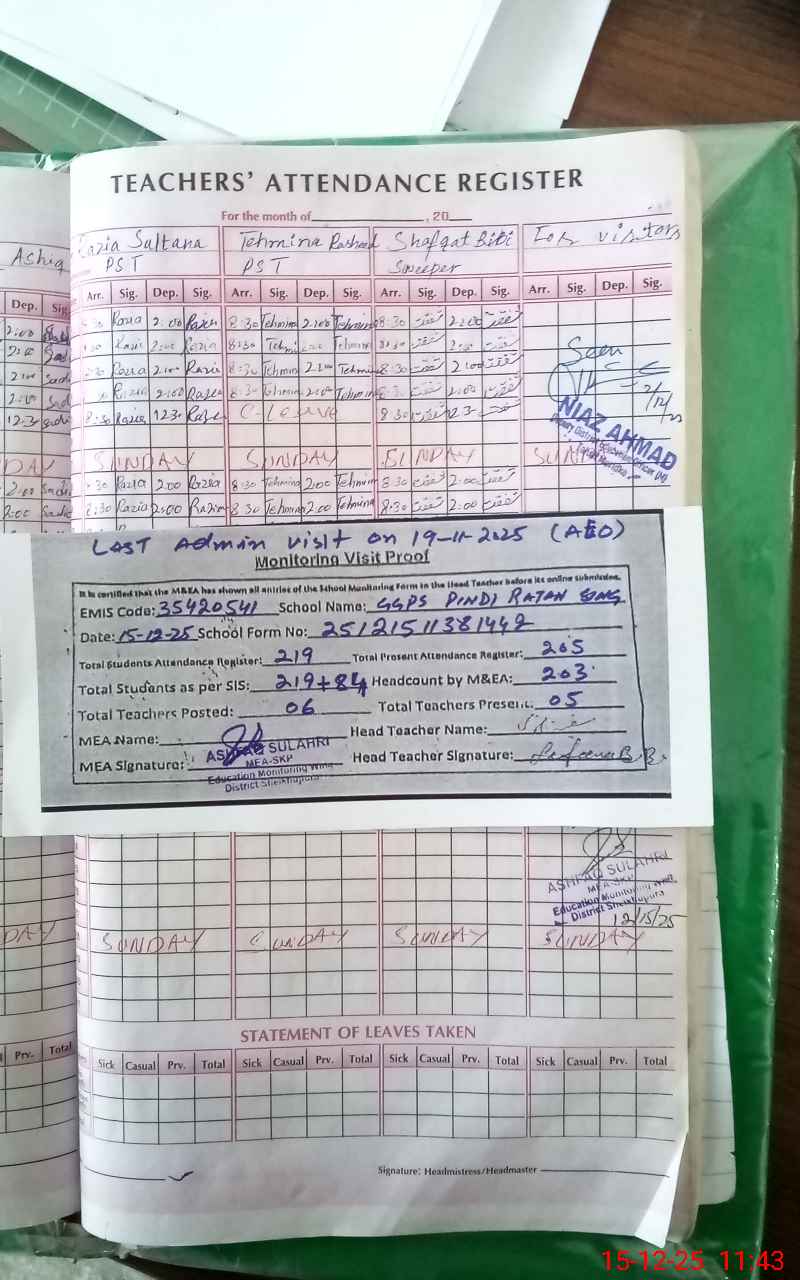 TEACHERS' ATTENDANCE REGISTER
For the month of , 20
Ashiq Razia Sultana Tehmina Rasheed Shafqat Bibi For visitors
PST PST Sweeper
Dep. Sig. Arr. Sig. Dep. Sig. Arr. Sig. Dep. Sig. Arr. Sig. Dep. Sig. Arr. Sig. Dep. Sig.
2:00 Razia 2:00 Razia 8:30 Tehmina 2:00 Tehmina 8:30 شفقت 2:00 شفقت
2:00 Razia 2:00 Razia 8:30 Tehmina 2:00 Tehmina 8:30 شفقت 2:00 شفقت
2:00 Razia 2:00 Razia 8:30 Tehmina 2:00 Tehmina 8:30 شفقت 2:00 شفقت
Seen
2:00 Razia 2:00 Razia 8:30 Tehmina 2:00 Tehmina 8:30 شفقت 2:00 شفقت
12:3 8:30 Razia 12:30 Razia C-Leave 8:30 شفقت شفقت
NIAZ AHMAD
DAY SUNDAY SUNDAY SUNDAY
2:00 Sadi 8:30 Razia 2:00 Razia 8:30 Tehmina 2:00 Tehmina 8:30 شفقت 2:00 شفقت
2:00 Sadi 8:30 Razia 2:00 Razia 8:30 Tehmina 2:00 Tehmina 8:30 شفقت 2:00 شفقت
Last Admin visit on 19-11-2025 (AEO)
Monitoring Visit Proof
It is certified that the M&EA has shown all entries of the School Monitoring Form to the Head Teacher before its online submission.
EMIS Code: 35420541 School Name: GGPS PINDI RATAN SING
Date: 15-12-25 School Form No: 25121511381442
Total Students Attendance Register: 219 Total Present Attendance Register: 205
Total Students as per SIS: 219+84 Headcount by M&EA: 203
Total Teachers Posted: 06 Total Teachers Present: 05
MEA Name: Head Teacher Name:
MEA Signature: Head Teacher Signature:
ASHFAQ SULAHRI
MEA-SKP
Education Monitoring Wing
District Sheikhupura
ASHFAQ SULAHRI
MEA-SKP
Education Monitoring Wing
District Sheikhupura
12/15/25
DAY SUNDAY SUNDAY SUNDAY SUNDAY
STATEMENT OF LEAVES TAKEN
Prv. Total Sick Casual Prv. Total Sick Casual Prv. Total Sick Casual Prv. Total Sick Casual Prv. Total
Signature: Headmistress/Headmaster
15-12-25 11:43